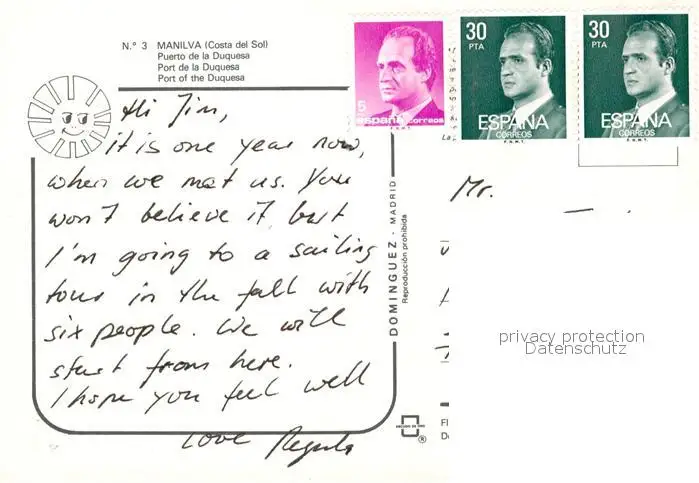 N.º 3 MANILVA (Costa del Sol)
Puerto de la Duquesa
Port de la Duquesa
Port of the Duquesa
Hi Jim,
it is one year now,
when we met us. You
won't believe it, but
I'm going to a sailing
tour in the fall with
six people. We will
start from here.
I hope you feel well
Love Regula
DOMINGUEZ - MADRID
Reproducción prohibida
5
españa correos
F.N.M.T.
30
PTA
ESPAÑA
CORREOS
F.N.M.T.
30
PTA
ESPAÑA
CORREOS
F.N.M.T.
Mr.
privacy protection
Datenschutz
®